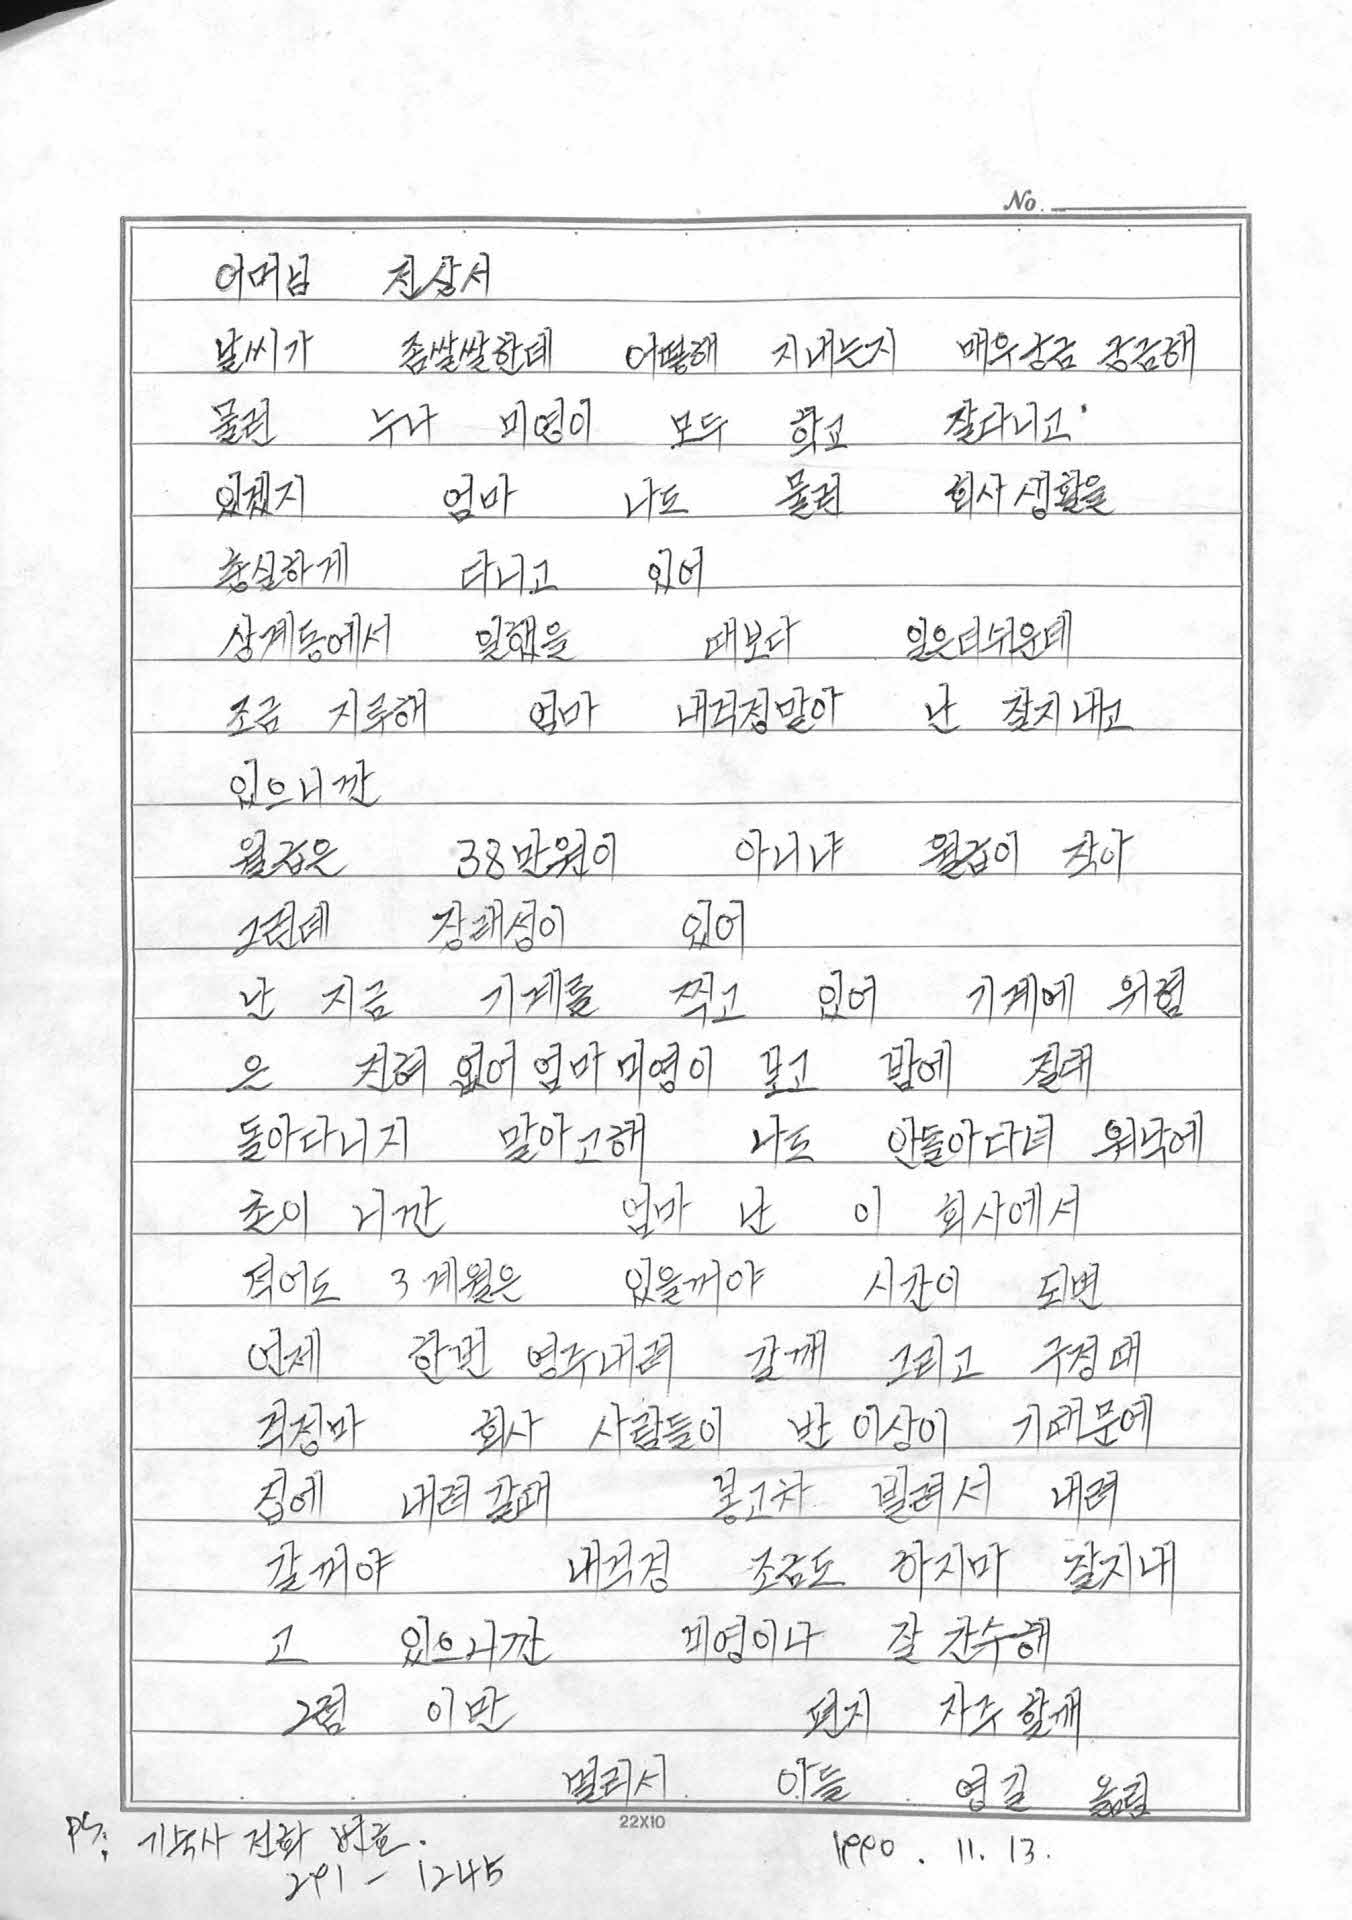 No.
어머님 전상서
날씨가 좀쌀쌀한데 어떻해 지내는지 매우궁금 궁금해
물런 누나 미영이 모두 학교 잘다니고
있겠지 엄마 나도 물런 회사생활을
충실하게 다니고 있어
상계동에서 일했을 때보다 일은더쉬운데
조금 지루해 엄마 내걱정말아 난 잘지내고
있으니깐
월급은 38만원이 아니냐 월급이 작아
그런데 장래성이 있어
난 지금 기계를 찍고 있어 기계에 위험
은 전혀 없어 엄마 미영이 보고 밤에 절대
돌아다니지 말아고해 나도 안돌아다녀 워낙에
촌이 니깐 엄마 난 이 회사에서
적어도 3계월은 있을꺼야 시간이 되면
언제 한번 영주내려 갈깨 그리고 구정때
걱정마 회사 사람들이 반 이상이 기때문에
집에 내려갈때 봉고차 빌려서 내려
갈꺼야 내걱정 조금도 하지마 잘지내
고 있으니깐 미영이나 잘 간수해
그럼 이만 편지 자주할깨
멀리서 아들 영길 올림
22X10
PS: 기숙사 전화 번호. 1990. 11. 13.
291-1245